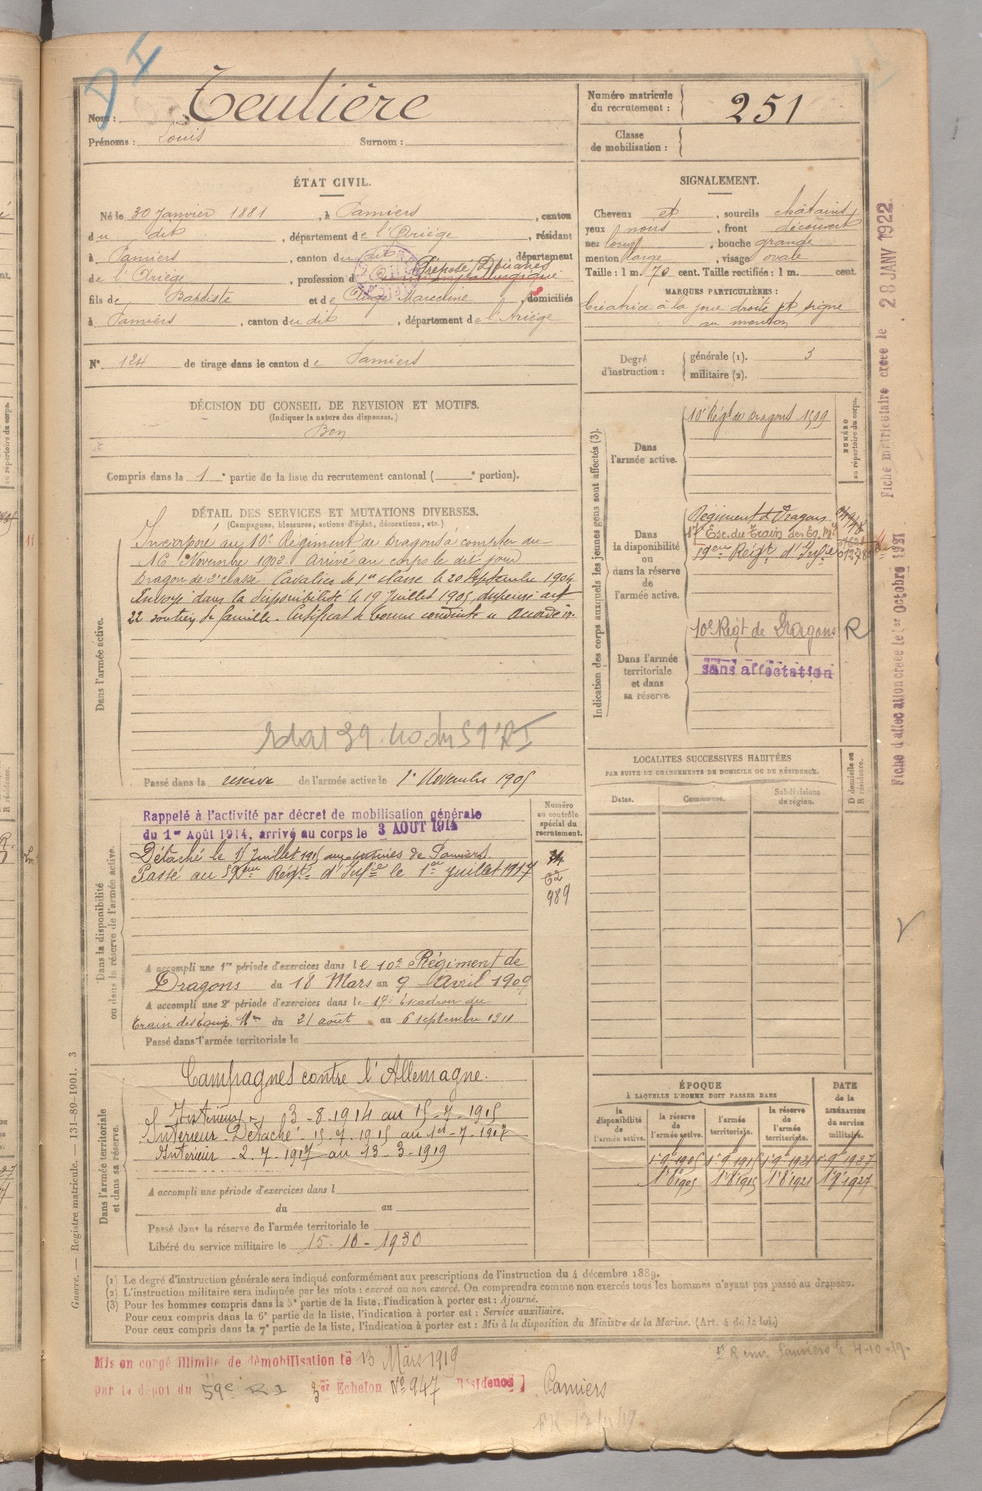 Teulière
Nom :
Prénoms : Louis Surnom :
Numéro matricule
du recrutement : 251
Classe
de mobilisation :
ÉTAT CIVIL.
Né le 30 Janvier 1881, à Pamiers, canton
du dit, département de l'Ariège, résidant
à Pamiers, canton du dit, département
de l'Ariège, profession de Préposé Douanes
fils de Baptiste et de Marceline, domiciliés
à Pamiers, canton du dit, département de l'Ariège
N° 124 de tirage dans le canton de Pamiers
SIGNALEMENT.
Cheveux et, sourcils châtains
yeux, front découvert
nez long, bouche grande
menton large, visage ovale
Taille : 1 m. 70 cent. Taille rectifiée : 1 m. cent.
MARQUES PARTICULIÈRES :
Cicatrice à la joue droite et signe
au menton
Degré
d'instruction :
générale (1). 3
militaire (2).
DÉCISION DU CONSEIL DE REVISION ET MOTIFS.
(Indiquer la nature des dispenses.)
Bon
Compris dans la 1e partie de la liste du recrutement cantonal ( e portion).
DÉTAIL DES SERVICES ET MUTATIONS DIVERSES.
(Campagnes, blessures, actions d'éclat, décorations, etc.)
Dans l'armée active.
Incorporé au 10e Régiment de Dragons à compter du
16 Novembre 1902 Arrivé au corps le dit jour
Dragon de 2e classe. Cavalier de 1re classe le 20 Septembre 1904
Envoyé dans la disponibilité le 19 Juillet 1905 dispensé art
22 soutien de famille. Certificat de bonne conduite accordé
Passé dans la réserve de l'armée active le 1er Novembre 1905
Indication des corps auxquels les jeunes gens sont affectés (3).
Dans
l'armée active.
10e Régt de Dragons 1509
NUMÉRO
au répertoire du corps.
Dans
la disponibilité
ou dans la réserve
de
l'armée active.
Régiment de Dragons
17e Esc. du Train des Eq. Mres
Dans l'armée
territoriale
et dans
sa réserve.
10e Régt de Dragons R
sans affectation
Dans la disponibilité
ou dans la réserve de l'armée active.
Rappelé à l'activité par décret de mobilisation générale
du 1er Août 1914, arrivé au corps le 3 AOUT 1914
Détaché le 15 Juillet 1915 aux usines de Pamiers
Passé au 59ème Régt d'Infie le 1er Juillet 1917
Numéro
au contrôle
spécial du
recrutement.
989
A accompli une 1re période d'exercices dans le 10e Régiment de
Dragons du 18 Mars au 9 Avril 1909
A accompli une 2e période d'exercices dans le 17e Escadron du
train des Equip. Mres du 21 août au 6 septembre 1911
Passé dans l'armée territoriale le
LOCALITÉS SUCCESSIVES HABITÉES
PAR SUITE DE CHANGEMENTS DE DOMICILE OU DE RÉSIDENCE.
Dates. Communes. Subdivisions
de région.
D domicile ou
R résidence.
Dans l'armée territoriale
et dans sa réserve.
Campagnes contre l'Allemagne.
Intérieur 3-8-1914 au 15-7-1915
Intérieur Détaché 15-7-1915 au 1er-7-1917
Intérieur 2-7-1917 au 13-3-1919
A accompli une période d'exercices dans l
du au
Passé dans la réserve de l'armée territoriale le
Libéré du service militaire le 15-10-1930
ÉPOQUE
À LAQUELLE L'HOMME DOIT PASSER DANS
la
disponibilité
de
l'armée active.
la réserve
de
l'armée active.
l'armée
territoriale.
la réserve
de
l'armée
territoriale.
DATE
de la
LIBÉRATION
du service
militaire.
(1) Le degré d'instruction générale sera indiqué conformément aux prescriptions de l'instruction du 4 décembre 1889.
(2) L'instruction militaire sera indiquée par les mots : exercé ou non exercé. On comprendra comme non exercés tous les hommes n'ayant pas passé au drapeau.
(3) Pour les hommes compris dans la 5e partie de la liste, l'indication à porter est : Ajourné.
Pour ceux compris dans la 6e partie de la liste, l'indication à porter est : Service auxiliaire.
Pour ceux compris dans la 7e partie de la liste, l'indication à porter est : Mis à la disposition du Ministre de la Marine. (Art. 4 de la loi.)
Mis en congé illimité de démobilisation le 13 Mars 1919
par le dépôt du 59e RI 3er Echelon N° 947 Résidence Pamiers
Guerre. — Registre matricule. — 131-89-1901. 3
Fiche matriculaire créée le 28 JANV 1922
Fiche d'affectation créée le 1er Octobre 1931